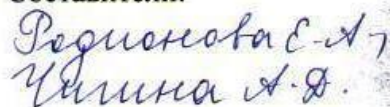 Составители:
Родионова Е.А,
Чигина А.Д.